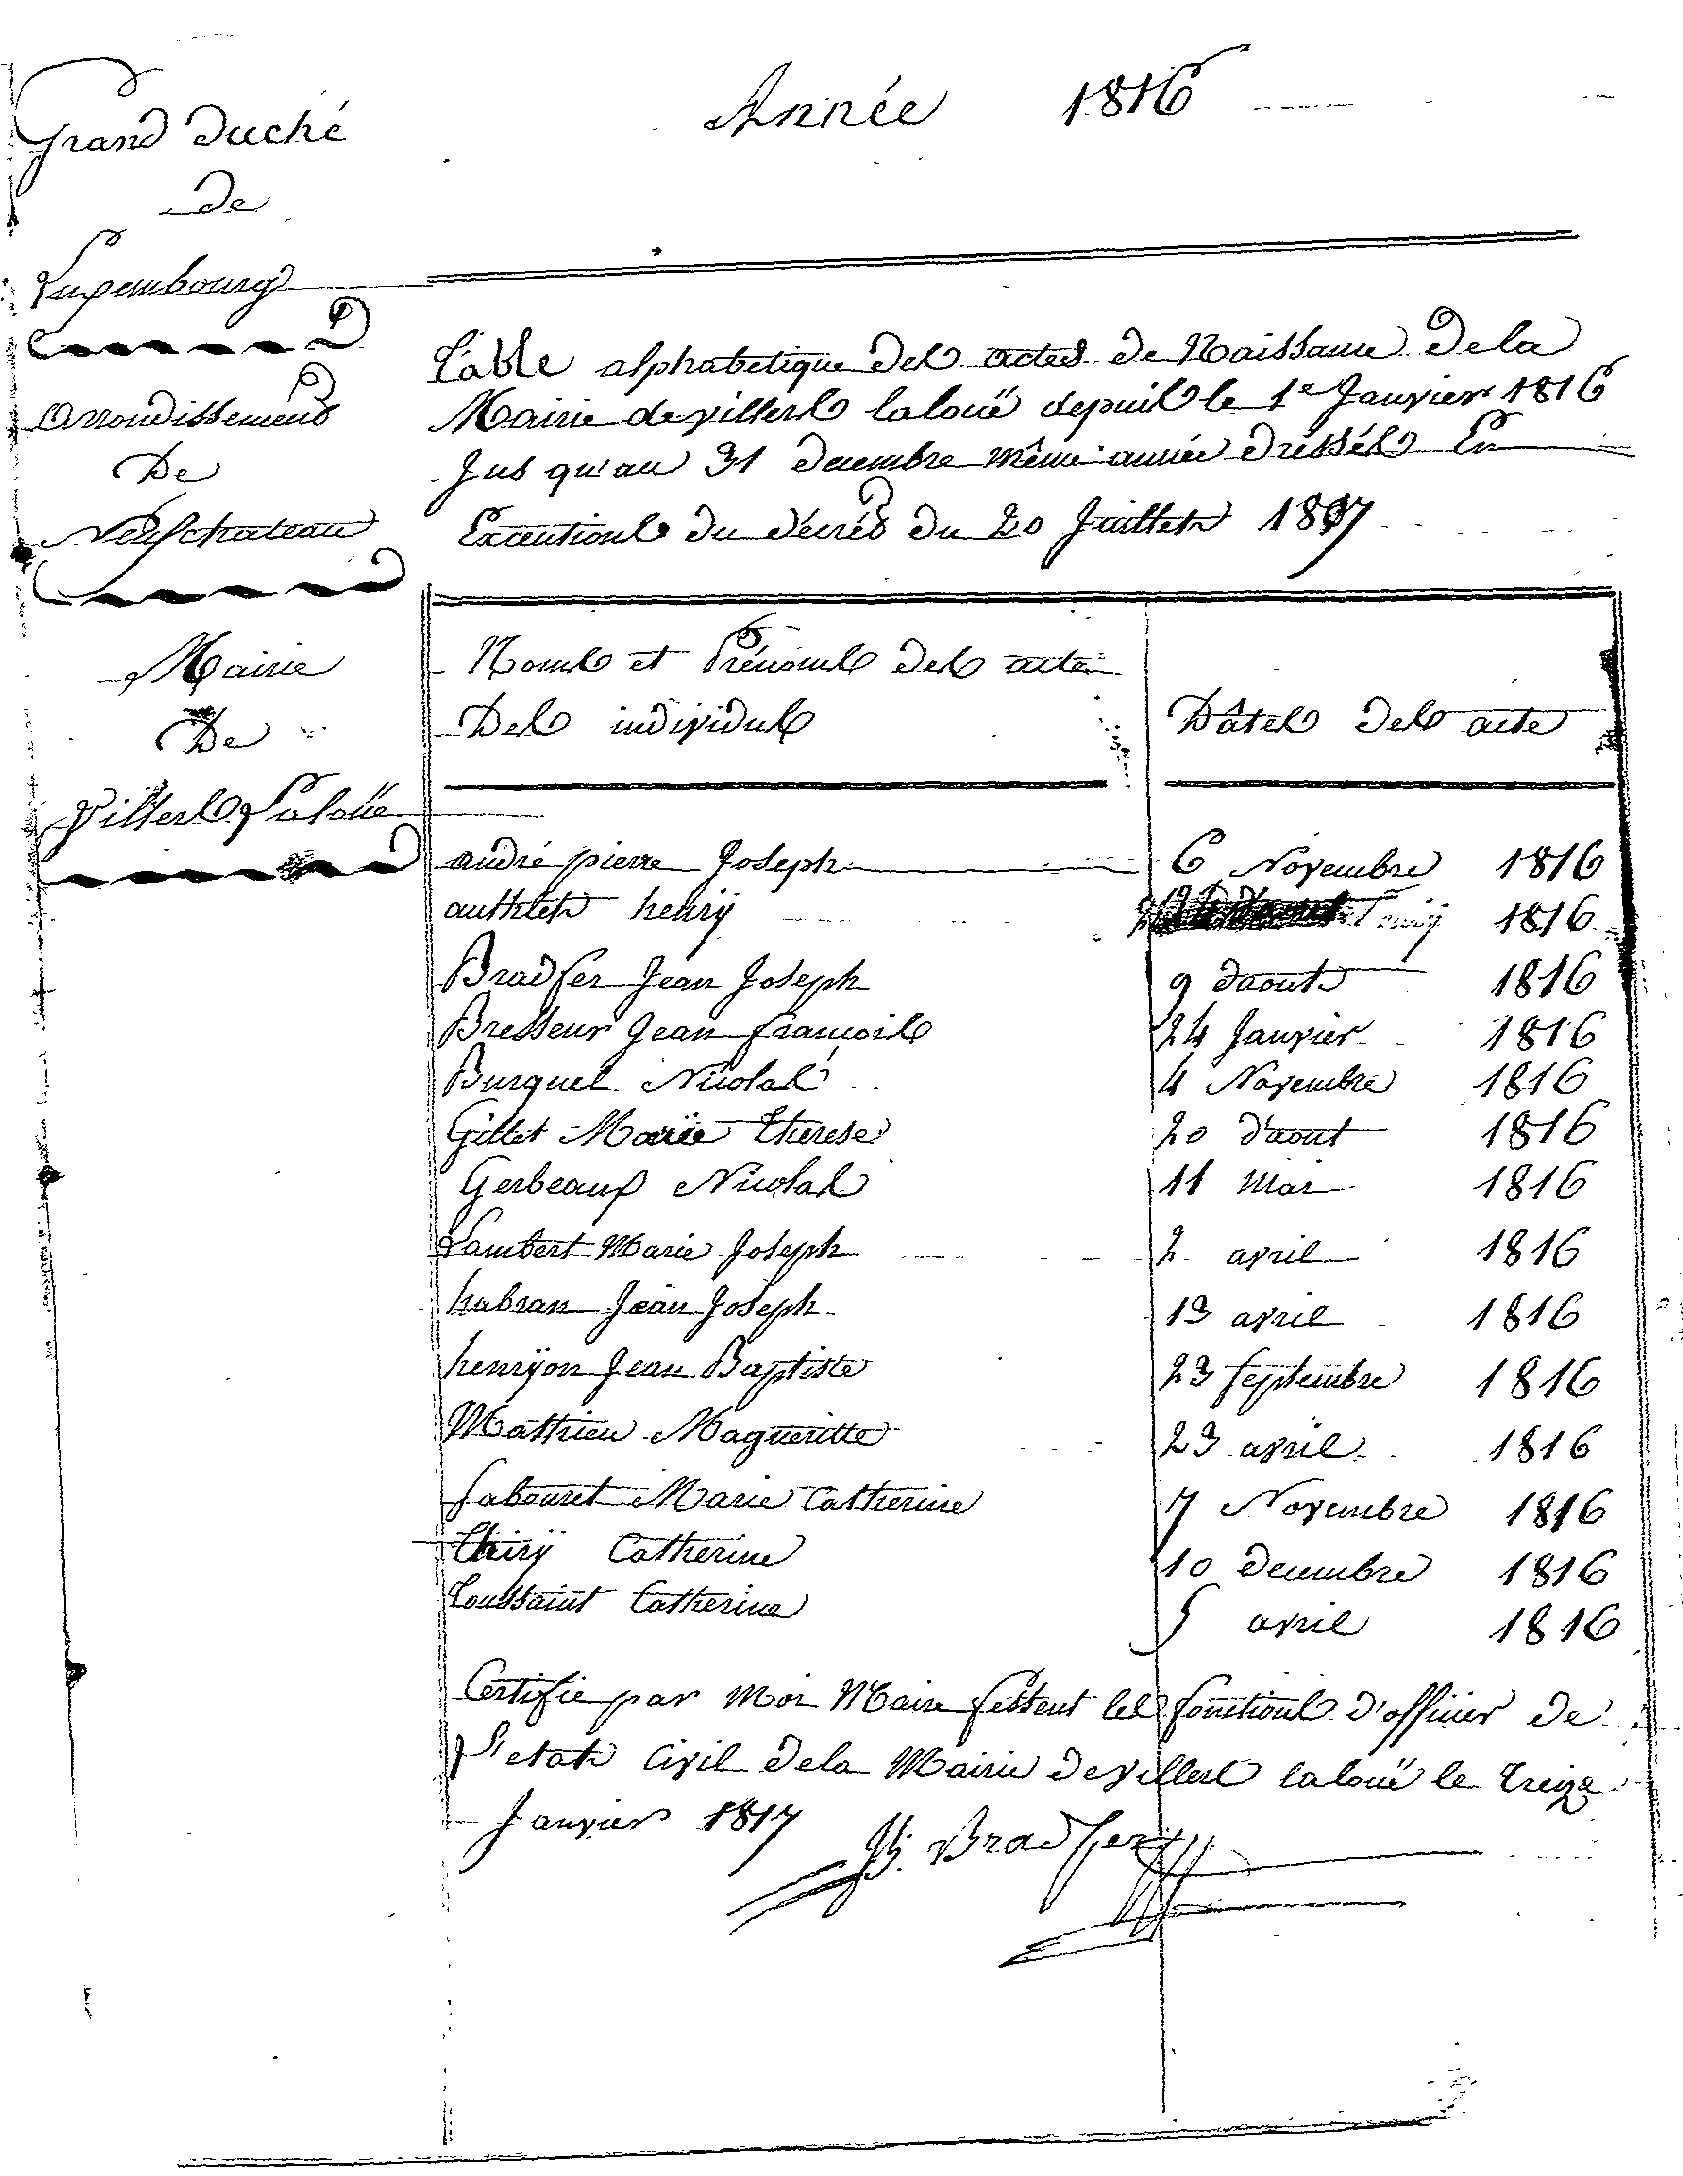 Année 1816
Grand Duché
de
Luxembourg
Arrondissement
De
Neufchateau
Mairie
De
Villers Laloüe
Table alphabetique des actes de Naissance de la
Mairie de villers laloüe depuis le 1e Janvier 1816
Jus qu'au 31 decembre même année dréssés En
Executions du décrés du 20 Juillet 1807
Noms et Prénoms des acte
Des individus
Dâtes des acte
andré pierre Joseph 6 Novembre 1816
authlet henrÿ 1816
Bradfer Jean Joseph 9 daout 1816
Bresseur Jean francois 24 Janvier 1816
Burquel Nicolas 4 Novembre 1816
Gillet Marie therese 20 d'aout 1816
Gerbeaux Nicolas 11 Mai 1816
Lambert Marie Joseph 2 avril 1816
habran Jean Joseph 13 avril 1816
henrÿon Jean Baptiste 23 septembre 1816
Mathieu Magueritte 23 avril 1816
sabouret Marie Catherine 7 Novembre 1816
thirÿ Catherine 10 decembre 1816
toussaint Catherine 5 avril 1816
Certifie par moi Maire fessent les fonctions d'officier de
l'etat civil de la Mairie de villers laloüe le treize
Janvier 1817
Bradfer